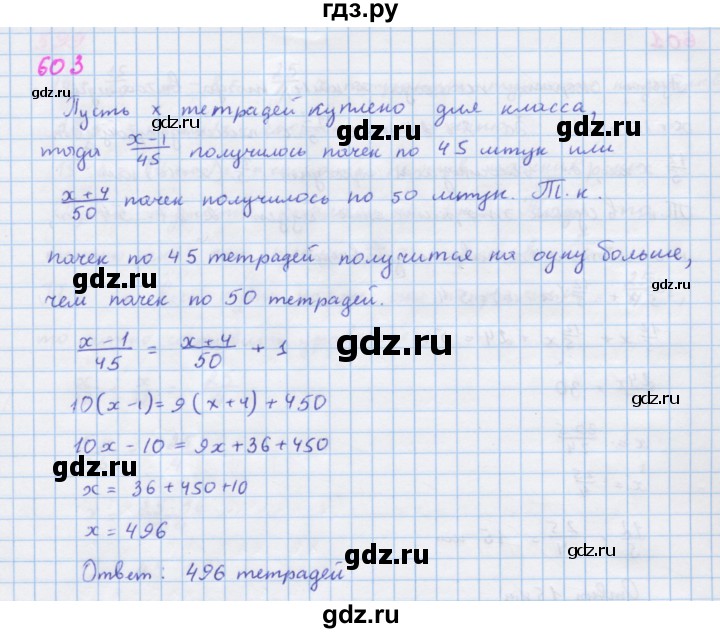 гдз.ру
603
Пусть x тетрадей куплено для класса,
тогда (x-1)/45 получилось пачек по 45 штук или
(x+4)/50 пачек получилось по 50 штук. Т.к.
пачек по 45 тетрадей получится на одну больше,
чем пачек по 50 тетрадей.
(x-1)/45 = (x+4)/50 + 1
10(x-1)=9(x+4)+450
10x-10=9x+36+450
x= 36+450+10
x=496
Ответ: 496 тетрадей
gdz.ru
gdz.ru
gdz.ru
gdz.ru
gdz.ru
gdz.ru
gdz.ru
gdz.ru
gdz.ru
gdz.ru
gdz.ru
gdz.ru
gdz.ru